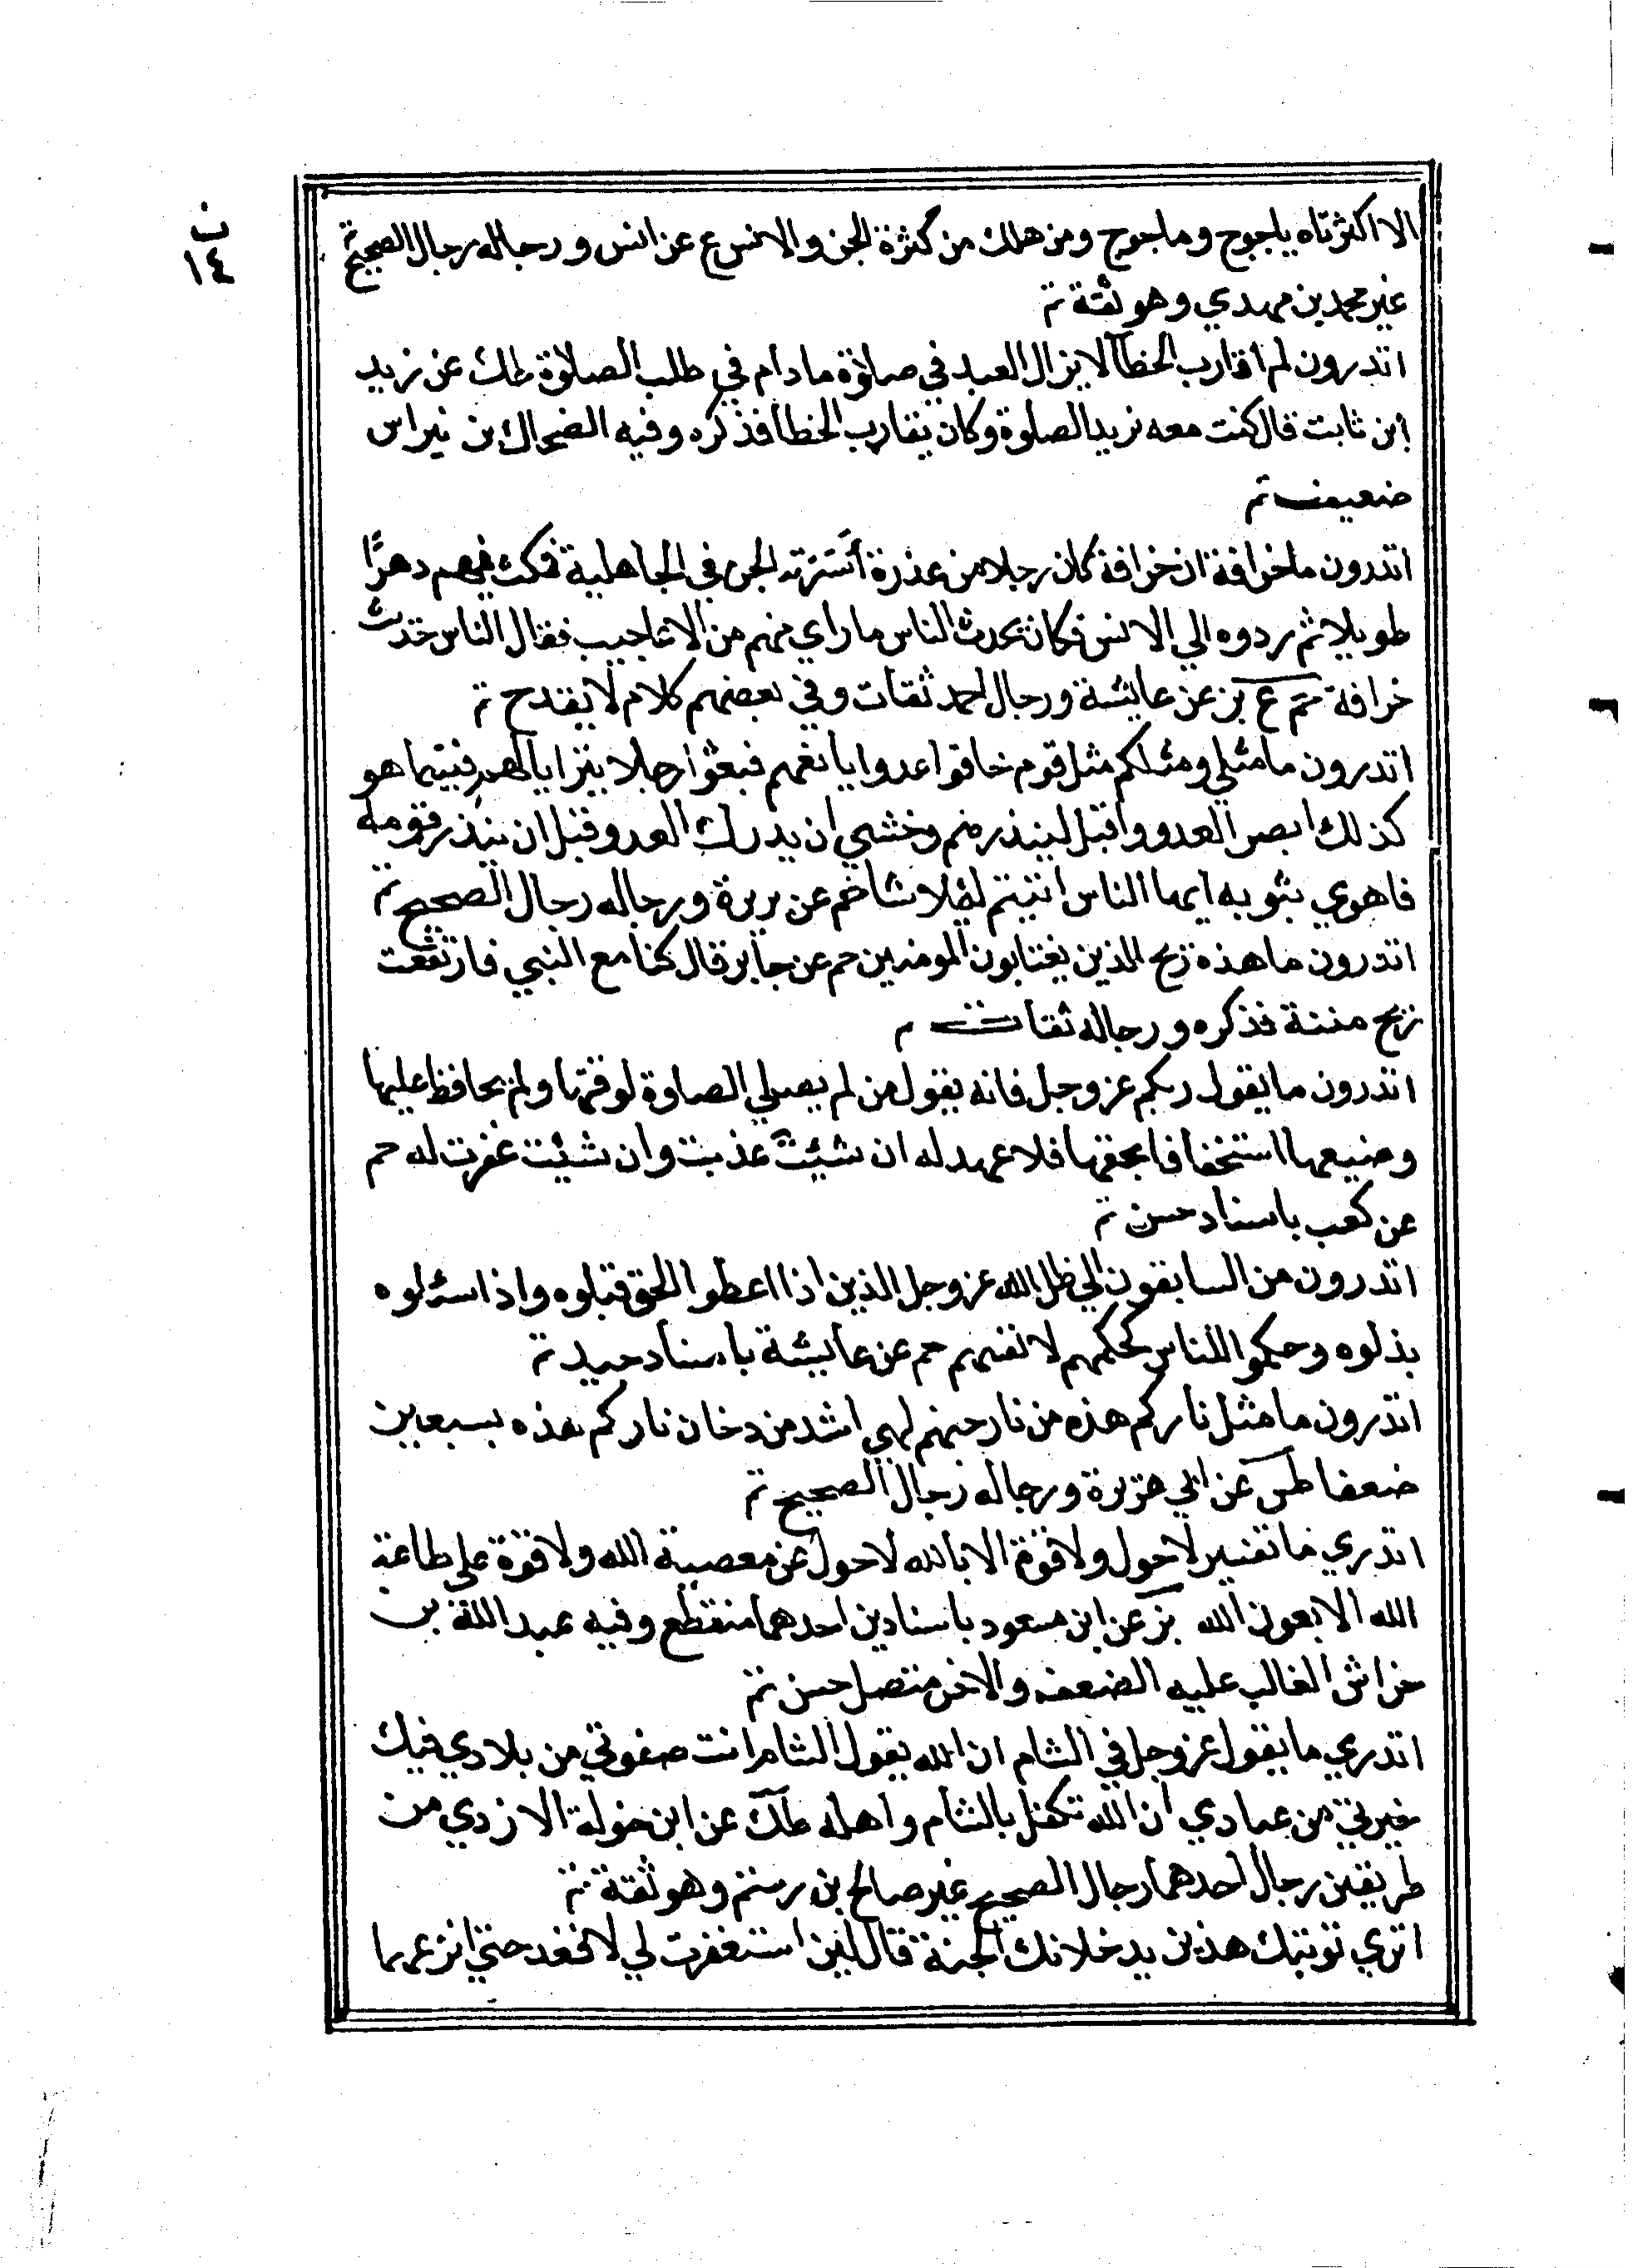 ن
١٤
الا اكثرتاه ياجوج وماجوج ومن هلك من كثرة الجن والانس ع عن انس ورجاله رجال الصحيح تم
غير محمد بن مهدي وهو ثقة تم
اتدرون لم اقارب الخطا لا يزال العبد في صلوة ما دام في طلب الصلاة طك عن زيد
ابن ثابت قال كنت معه نريد الصلوة وكان يقارب الخطا فذكره وفيه الضحاك بن نبراس
ضعيف تم
اتدرون ما خرافة ان خرافة كان رجلا من عذرة أسرته الجن في الجاهلية فمكث فيهم دهرًا
طويلا ثم ردوه الي الانس فكان يحدث الناس ما راي منهم من الاعاجيب فقال الناس حديث
خرافة حم ع بز عن عايشة ورجال احمد ثقات وفي بعضهم كلام لا يقدح تم
اتدرون ما مثلي ومثلكم مثل قوم خافوا عدوا ياتهم فبعثوا رجلا يترايا لهم فبينما هو
كذلك ابصر العدو واقبل لينذرهم وخشي ان يدرك العدو قبل ان ينذر قومه
فاهوي بثوبه ايها الناس اتيتم ثلاثا حم عن بريرة ورجاله رجال الصحيح تم
اتدرون ما هذه ريح الذين يغتابون المومنين حم عن جابر قال كنا مع النبي فارتفعت
ريح منتنة فذكره ورجاله ثقات تم
اتدرون ما يقول ربكم عز وجل فانه يقول من لم يصلي الصلوة لوقتها ولم يحافظ عليها
وضيعها استخفافا بحقها فلا عهد له ان شيئت عذبت وان شئيت غفرت له حم
عن كعب باسناد حسن تم
اتدرون من السابقون الي ظل الله عز وجل الذين اذا اعطوا الحق قبلوه واذا سئلوه
بذلوه وحكموا للناس كحكمهم لانفسهم حم عن عايشة باسناد جيد تم
اتدرون ما مثل ناركم هذه من نار جهنم لهي اشد من دخان ناركم هذه بسبعين
ضعفا طس عن ابي هريرة ورجاله رجال الصحيح تم
اتدري ما تفسير لا حول ولا قوة الا بالله لا حول عن معصية الله ولا قوة علي طاعة
الله الا بعون الله بز عن ابن مسعود باسنادين احدهما منقطع وفيه عبد الله بن
خراش الغالب عليه الضعف والاخر متصل حسن تم
اتدري ما يقول عز وجل في الشام ان الله يقول الشام انت صفوتي من بلادي فيك
خيرتي من عبادي ان الله تكفل بالشام واهله طك عن ابن خولة الازدي من
طريقين رجال احدهما رجال الصحيح غير صالح بن رستم وهو ثقة تم
اتري توبتيك هذين يدخلانك الجنة قال لين استغفرت لي لا اقعد حتي انزعهما